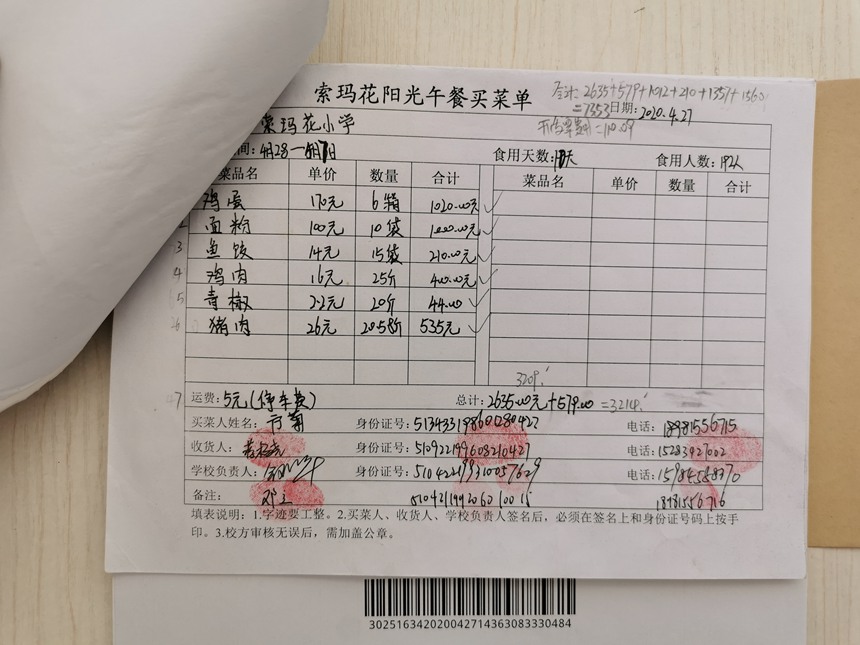 索玛花阳光午餐买菜单
合计: 2635+579+1012+210+1357+1560
=7353
日期: 2020.4.27
索玛花小学
间: 4月28一 食用天数: 天 食用人数:
菜品名 单价 数量 合计 菜品名 单价 数量 合计
鸡蛋 170元 6箱 1020.00元 ✓
面粉 100元 10袋 1000.00元 ✓
3 鱼饺 14元 15袋 210.00元 ✓
4 鸡肉 16元 25斤 400.00元 ✓
5 青椒 2.2元 20斤 44.00 ✓
6 猪肉 26元 20.58斤 535元 ✓
3209.
7 运费: 5元(停车费) 总计: 2635.00元+579.00=3214.
买菜人姓名: 身份证号: 电话: 18981556715
收货人: 身份证号: 电话: 15283927002
学校负责人: 身份证号: 电话:
备注: 18981556716
填表说明：1.字迹要工整。2.买菜人、收货人、学校负责人签名后，必须在签名上和身份证号码上按手
印。3.校方审核无误后，需加盖公章。
30251634202004271436308333​0484